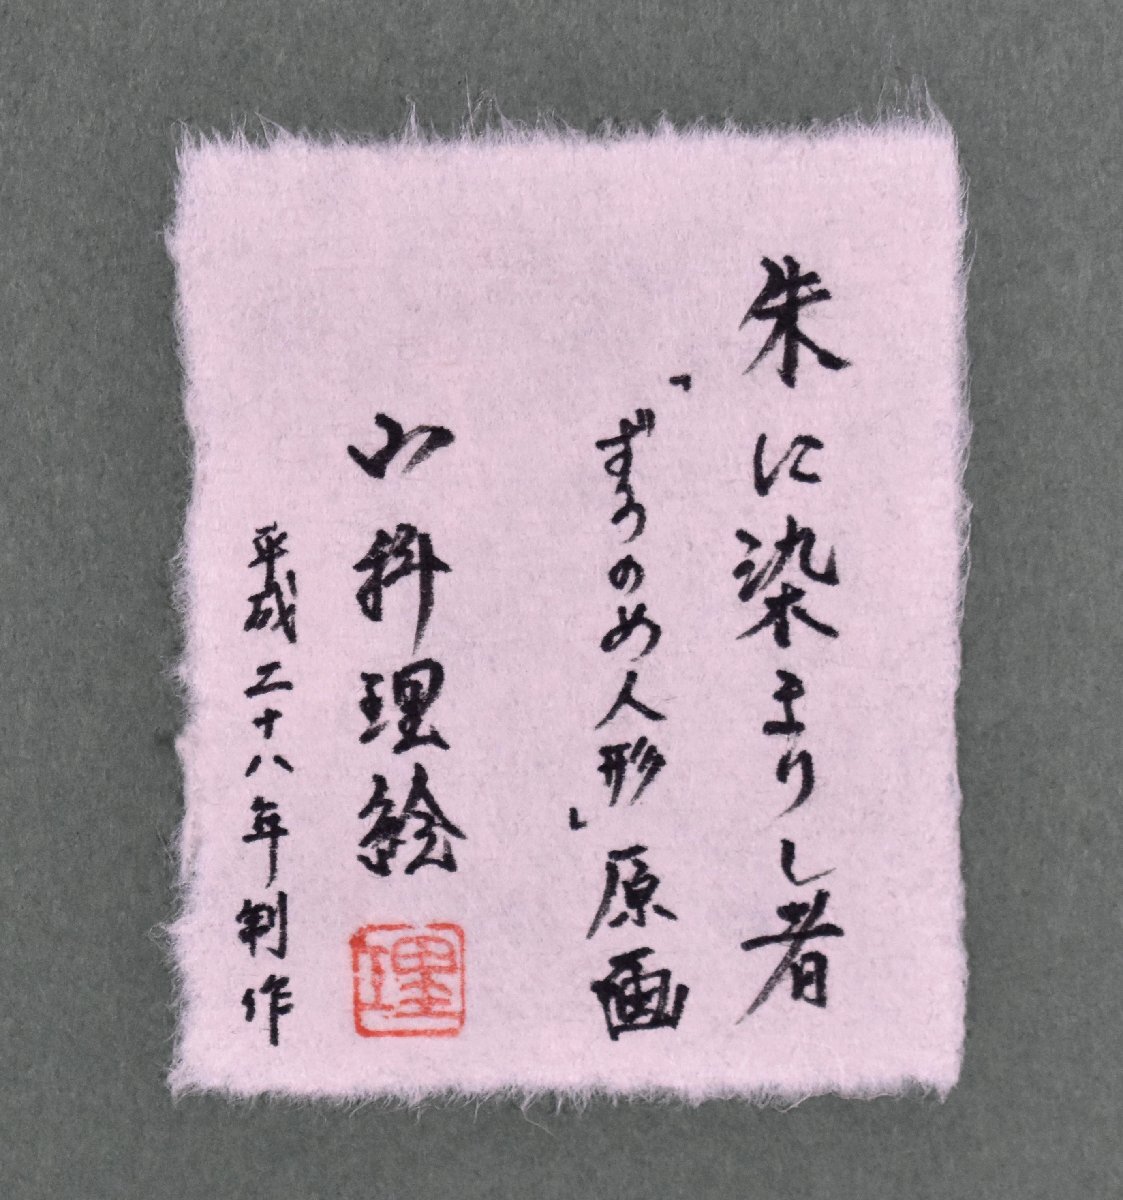 朱に染まりし者
「ずうのめ人形」原画
山科理絵
理
平成二十八年制作